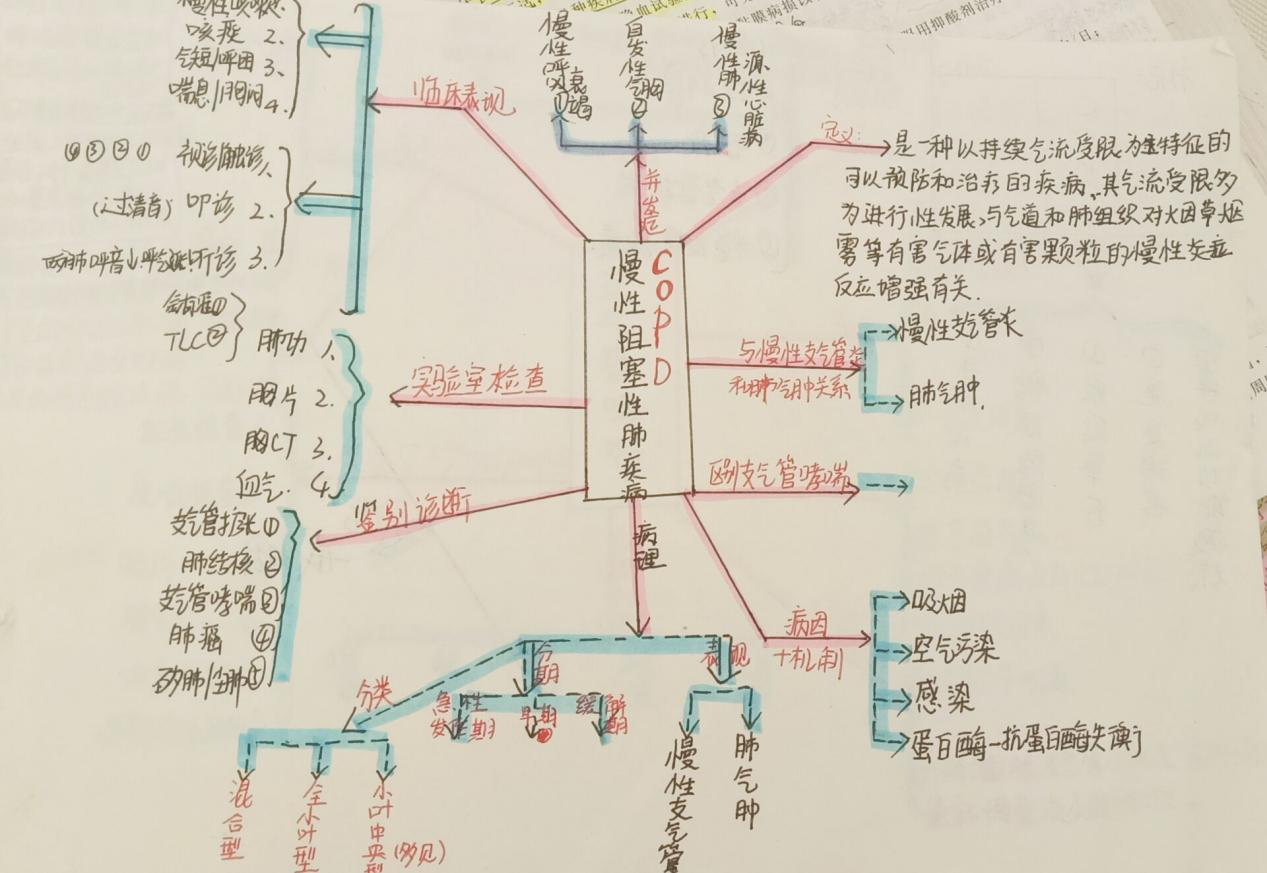 慢性咳嗽
咳痰 2、
气短/呼困 3、
喘息/胸闷 4、
临床表现
④ ③ ② ① 视诊触诊 1、
(过清音) 叩诊 2、
听诊 3、
TLC②
肺功 1、
胸片 2.
胸CT 3.
血气. 4.
实验室检查
鉴别诊断
支气管扩张①
肺结核②
支气管哮喘③
肺癌 ④
矽肺/尘肺⑤
慢性呼吸衰竭①
自发性气胸②
慢性肺源性心脏病③
并发症
COPD
慢性阻塞性肺疾病
定义:
是一种以持续气流受限为特征的
可以预防和治疗的疾病,其气流受限多
为进行性发展,与气道和肺组织对火因草烟
雾等有害气体或有害颗粒的慢性炎症
反应增强有关.
与慢性支气管炎
和肺气肿关系
慢性支气管炎
肺气肿.
区别支气管哮喘
病因
+机制
吸烟
空气污染
感染
蛋白酶-抗蛋白酶失衡
病理
分类
混合型
全小叶型
小叶中央型(多见)
分期
急性发作期
早期
缓解期
表现
慢性支气管
肺气肿